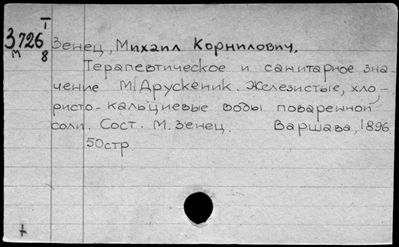 I
3726
М 8
Зенец, Михаил Корнилович.
Терапевтическое и санитарное зна-
чение М. Друскеник. Железистые, хло-
ристо-кальциевые воды поваренной
соли. Сост. М. Зенец. Варшава, 1896
50стр.